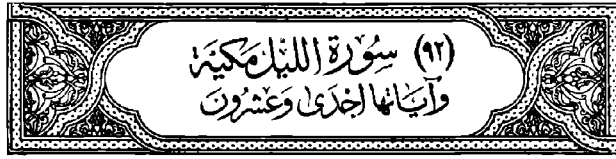 (٩٢) سُورَة اللَّيْل مَكيَّة
وَآيَاتهَا إِحْدَى وَعشْرُونَ